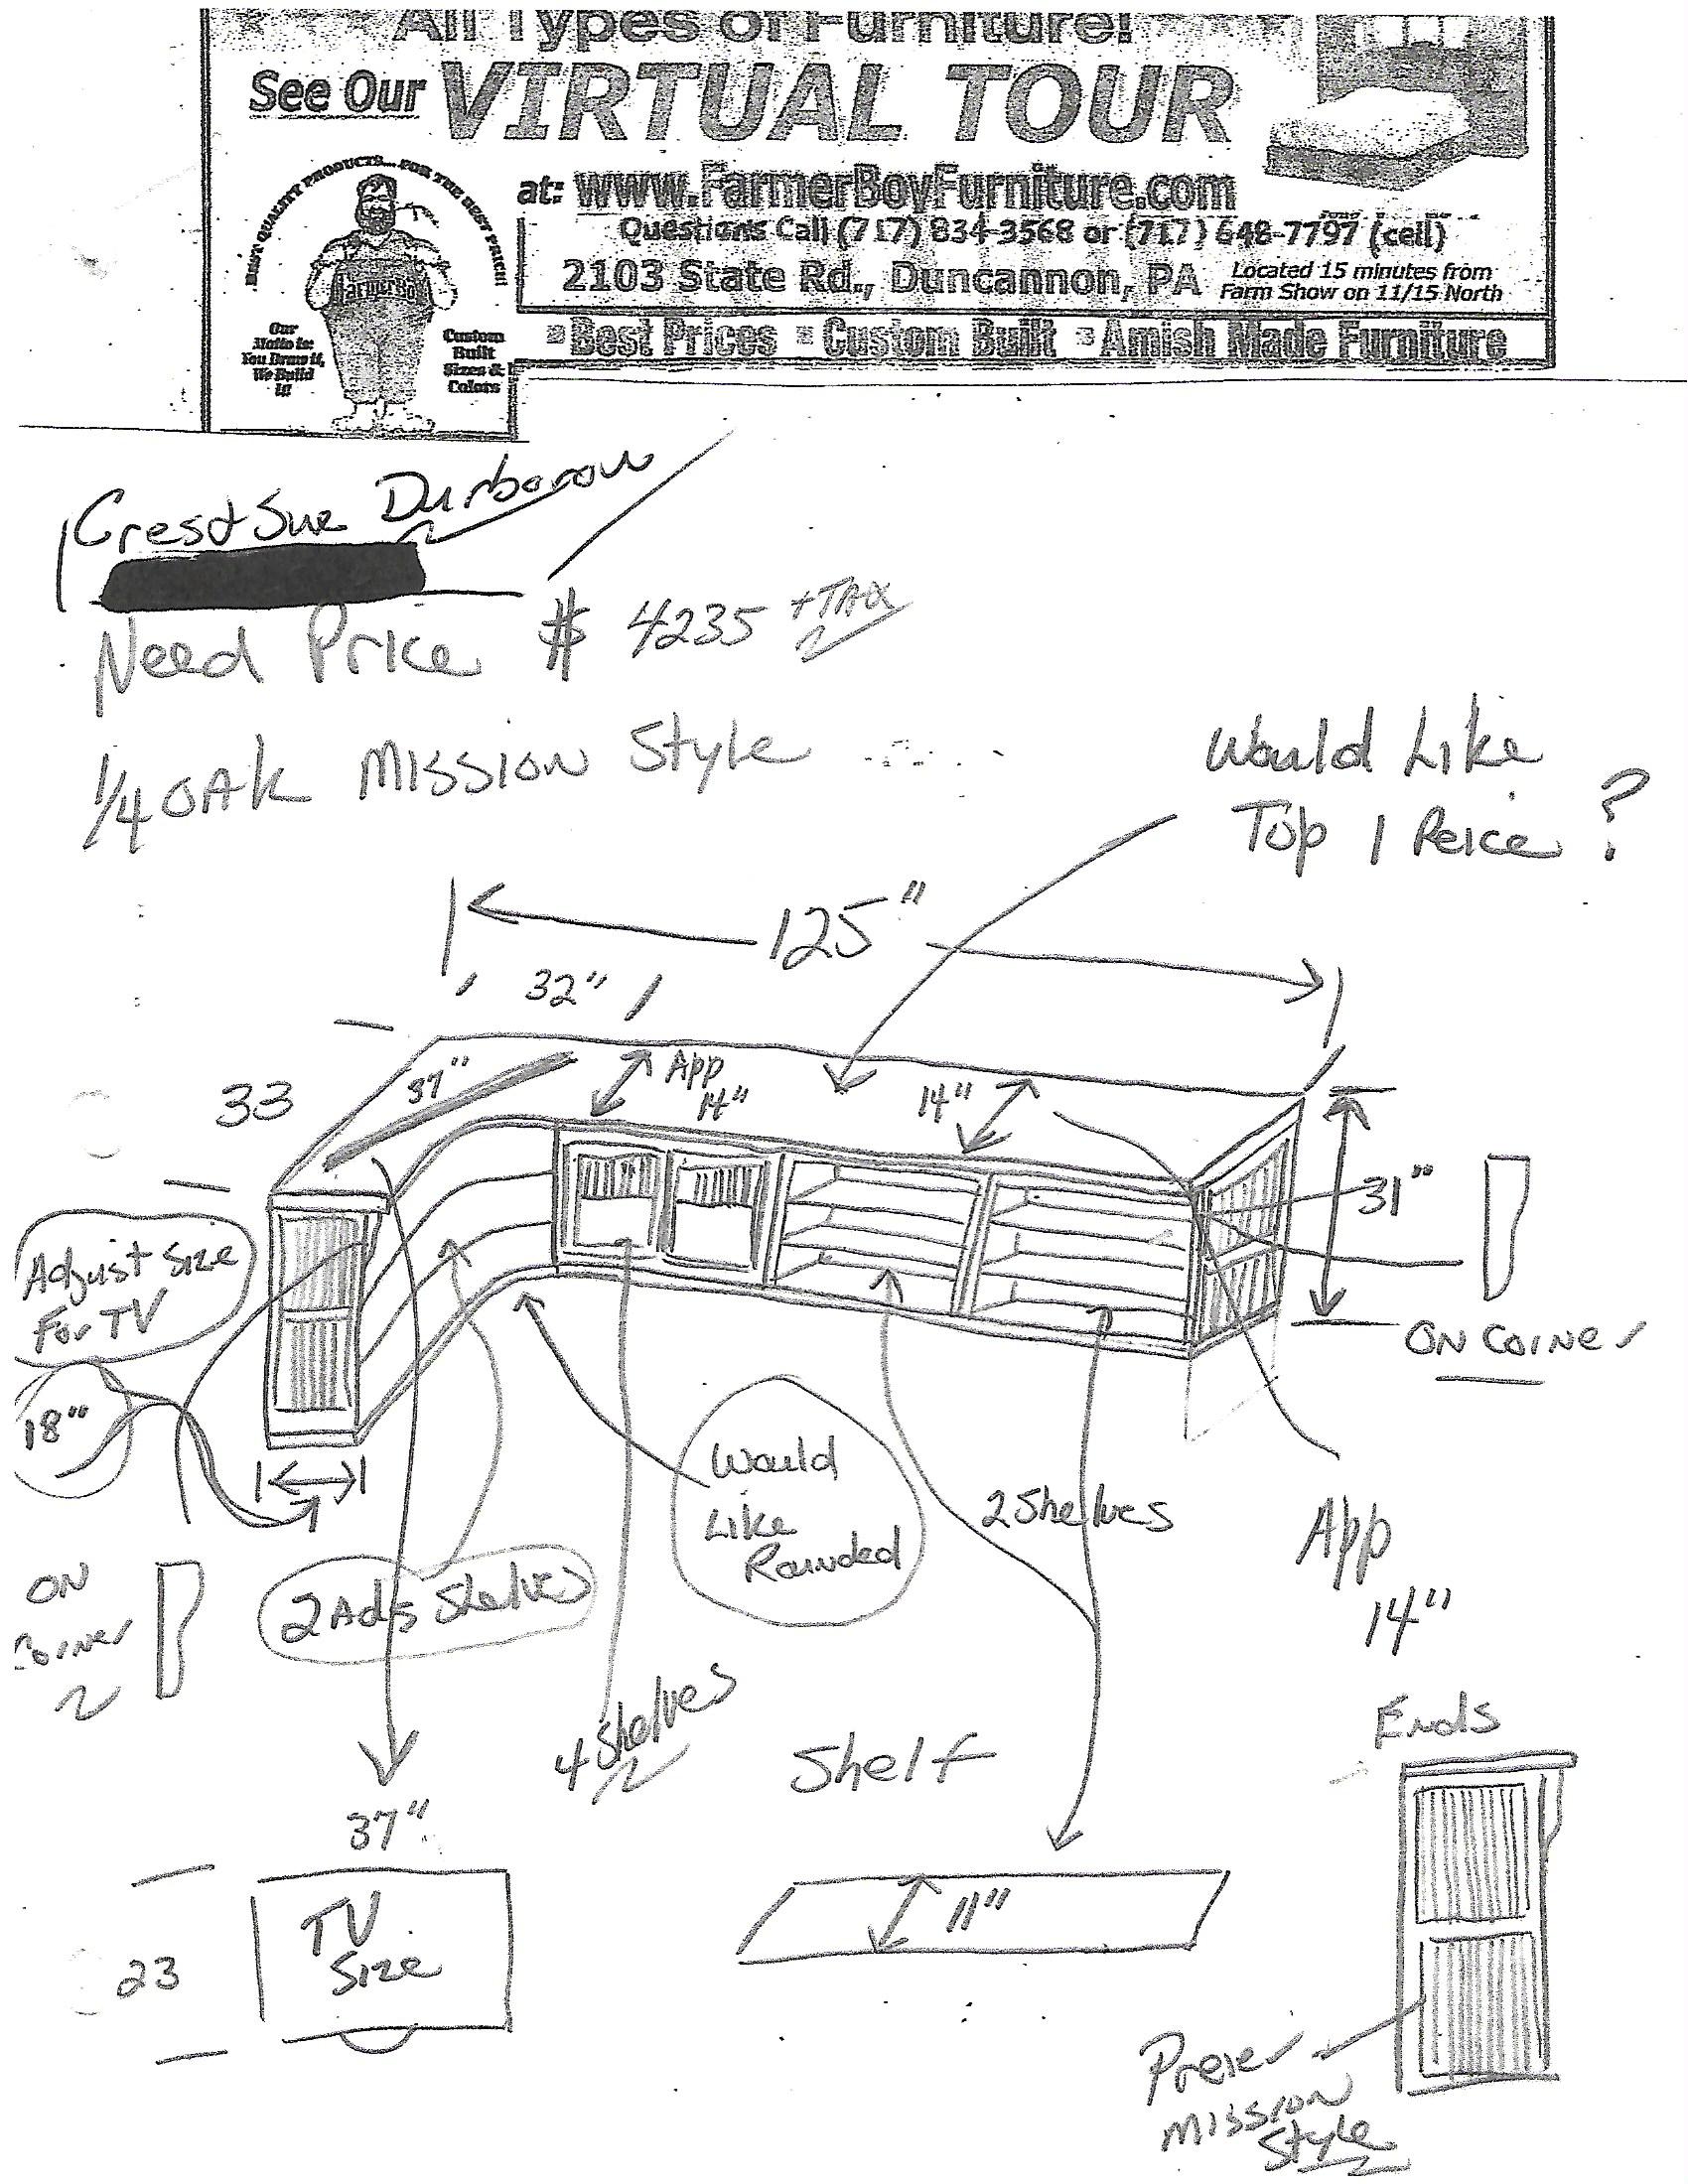 All Types of Furniture!
See Our VIRTUAL TOUR
at: www.FarmerBoyFurniture.com
Questions Call (717) 834-3568 or (717) 648-7797 (cell)
2103 State Rd., Duncannon, PA
Located 15 minutes from
Farm Show on 11/15 North
BEST QUALITY PRODUCTS... FOR THE BEST PRICE!!
FarmerBoy
Our
Motto is:
You Draw it,
We Build
it!
Custom
Built
Sizes &
Colors
Best Prices Custom Built Amish Made Furniture
Cres & Sue Durborow
Need Price $ 4235 + TAX
1/4 OAK Mission Style
Would Like
Top 1 Peice ?
125"
32"
33
37"
App
14"
14"
31"
Adjust Size
For TV
18"
ON Corner
Would
Like
Rounded
2 Shelves
App
14"
ON
Corner
2 Adj Shelves
4 Shelves
Shelf
Ends
37"
TV
Size
23
11"
Preier
Mission
Style